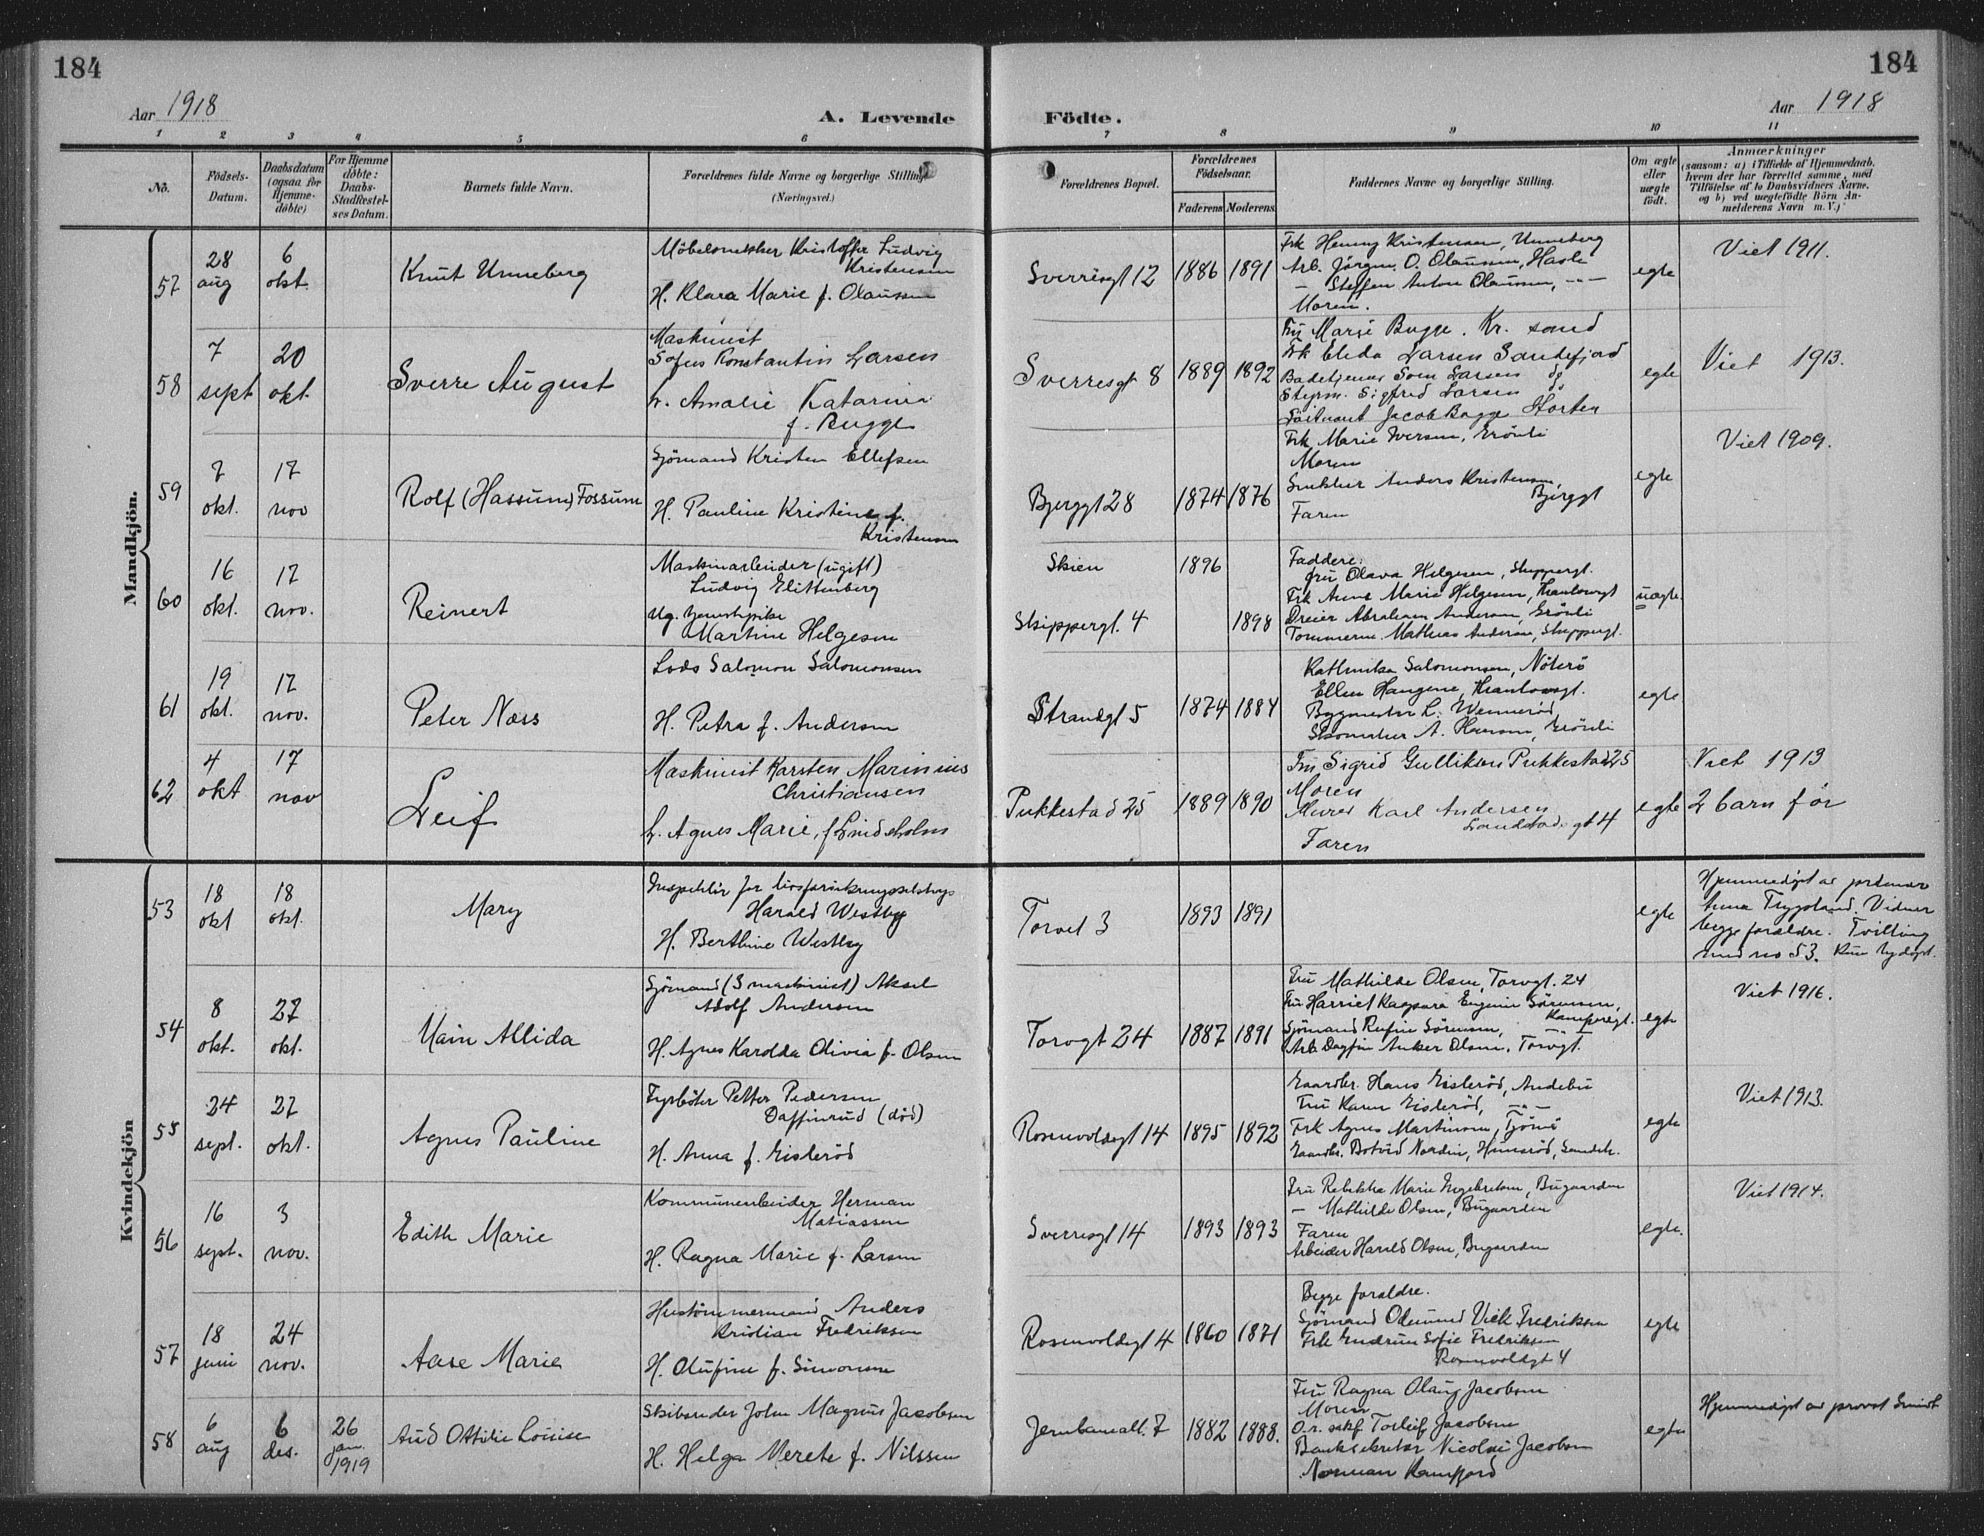 184
184
Aar 1918
A. Levende
Födte.
Aar 1918
1 2 3 4 5 6 7 8 9 10 11
No.
Födsels-
Datum.
Daabsdatum
(ogsaa for
Hjemme-
döbte)
For Hjemme
döbte:
Daabs-
Stadfestel-
ses Datum.
Barnets fulde Navn.
Forældrenes fulde Navne og borgerlige Stilling
(Næringsvei.)
Forældrenes Bopæl.
Forældrenes
Födselsaar.
Faderens Moderens
Faddernes Navne og borgerlige Stilling.
Om ægte
eller
uægte
födt.
Anmærkninger
(saasom: a) i Tilfælde af Hjemmedaab,
hvem der har forrettet samme, med
Tilföielse af to Daabsvidners Navne.
og b) ved uægtefödte Börn An-
melderens Navn m. V.)
Mandkjön.
57
28
aug
6
okt.
Knut Unneberg
Möbelsnekker Kristoffer Ludvig
Kristensen
H. Klara Marie f. Olaussen
Sverresgt 12
1886
1891
Frk Henny Kristensen, Unneberg
Arb. Jörgen O. Olaussen, Hasle
— Steffen Anton Olaussen, — —
Moren.
egte
Viet 1911.
58
7
sept
20
okt.
Sverre August
Maskinist
Sofus Konstantin Larsen
h. Amalie Katarina
f. Bugge
Sverresgt 8
1889
1892
Fru Marie Bugge. Kr. sand
Frk Elida Larsen Sandefjord
Badetjener Sven Larsen do
Styrm. Sigfred Larsen do
Löitnant Jacob Bugge Horten
egte
Viet 1913.
59
7
okt.
17
nov
Rolf (Hassum) Fossum
Sjömand Kristen Ellefsen
H. Pauline Kristine f.
Kristensen
Bjerggt 28
1874
1876
Frk Marie Iversen, Grönli
Moren
Snekker Anders Kristensen,
Bjerggt
Faren
egte
Viet 1909.
60
16
okt.
17
nov.
Reinert
Maskinarbeider (ugift)
Ludvig Elittenberg
Ug. tjenestepike
Martine Helgesen
Skien
Skippergt. 4
1896
1898
Faddere:
fru Olava Helgesen, Skippergt.
Frk Anne Marie Helgesen,
Dreier Abraham Andersen, Grönli
Tömmerm. Mathias Andersen, Skippergt.
uægte.
61
19
okt.
17
nov.
Peter Næss
Lods Salomon Salomonsen
H. Petra f. Andersen
Strandgt 5
1874
1884
Kathinka Salomonsen, Nöterö
Ellen Haugene,
Bygmester L. Wenneröd
Skomaker A. Hansen, Grönli
egte
62
4
okt
17
nov
Leif
Maskinist Karsten Marinius
Christiansen
h. Agnes Marie, f Lindsholm
Pukkestad 25
1889
1890
Fru Sigrid Gulliksen Pukkestad 25
Moren
Murer Karl Andersen
Landstads gt 4
Faren
egte
Viet 1913
2 barn før
Kvindekjön
53
18
okt
18
okt.
Mary
Inspektör for livsforsikringsselskap
Harald Westby
H. Berthine Westby
Torvet 3
1893
1891
egte
Hjemmedöpt av jordmor
Anna Trygsland. Vidner
begge foraldre. Tvilling
med no 53. Kun nydöpt.
54
8
okt.
27
okt.
Main Allida
Sjömand (3 maskinist) Aksel
Adolf Andersen
H. Agnes Karolda Olivia f. Olsen
Torvgt 24
1887
1891
Fru Mathilde Olsen, Torvgt. 24
Fru Harriet Kaspara Eugenie Sörensen,
Kampengt.
Sjömand Rufin Sörensen, — " —
Arb. Dagfin Anker Olsen, Torvgt.
egte
Viet 1916.
55
24
sept.
27
okt.
Agnes Pauline
Fyrböter Petter Pedersen
Daffinrud (död)
H. Anna f. Gisleröd
Rosenvoldsgt 14
1895
1892
Gaardbr. Hans Gisleröd, Andebu
Fru Karen Gisleröd, — " —
Frk Agnes Martinsen, Tjömö
Gaardbr. Botvid Nordin, Hunsröd, Sandeh.
egte
Viet 1913.
56
16
sept.
3
nov.
Edith Marie
Kommunearbeider Herman
Matiassen
H. Ragna Marie f. Larsen
Sverresgt 14
1893
1893
Fru Rebekka Marie Ingebretsen, Bugaarden
— Mathilde Olsen, Bugaarden
Faren
Arbeider Harald Olsen, Bugaarden
egte.
Viet 1914.
57
18
juni
24
nov.
Aase Marie
Hustömmermand Anders
Kristian Fredriksen
H. Olufine f. Simonsen
Rosenvoldsgt 4
1860
1871
Begge foraldre.
Sjömand Odmund Vick Fredriksen
Frk Gudrun Sofie Fredriksen
Rosenvoldsgt 4
egte
58
6
aug
6
des.
26
jan.
1919
Aud Ottilie Louise
Skibsreder John Magnus Jacobsen
H. Helga Merete f. Nilssen
Jernbaneall. 7
1882
1888.
Fru Ragna Olaug Jacobsen
Moren
O.r. sakf. Torleif Jacobsen
Banksekretær Nicolai Jacobsen
Norman Kamfjord
egte
Hjemmedöpt av provst Smidt